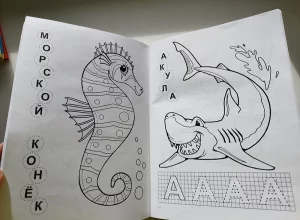 МОРСКОЙ
КОНЁК
АКУЛА
А А А А